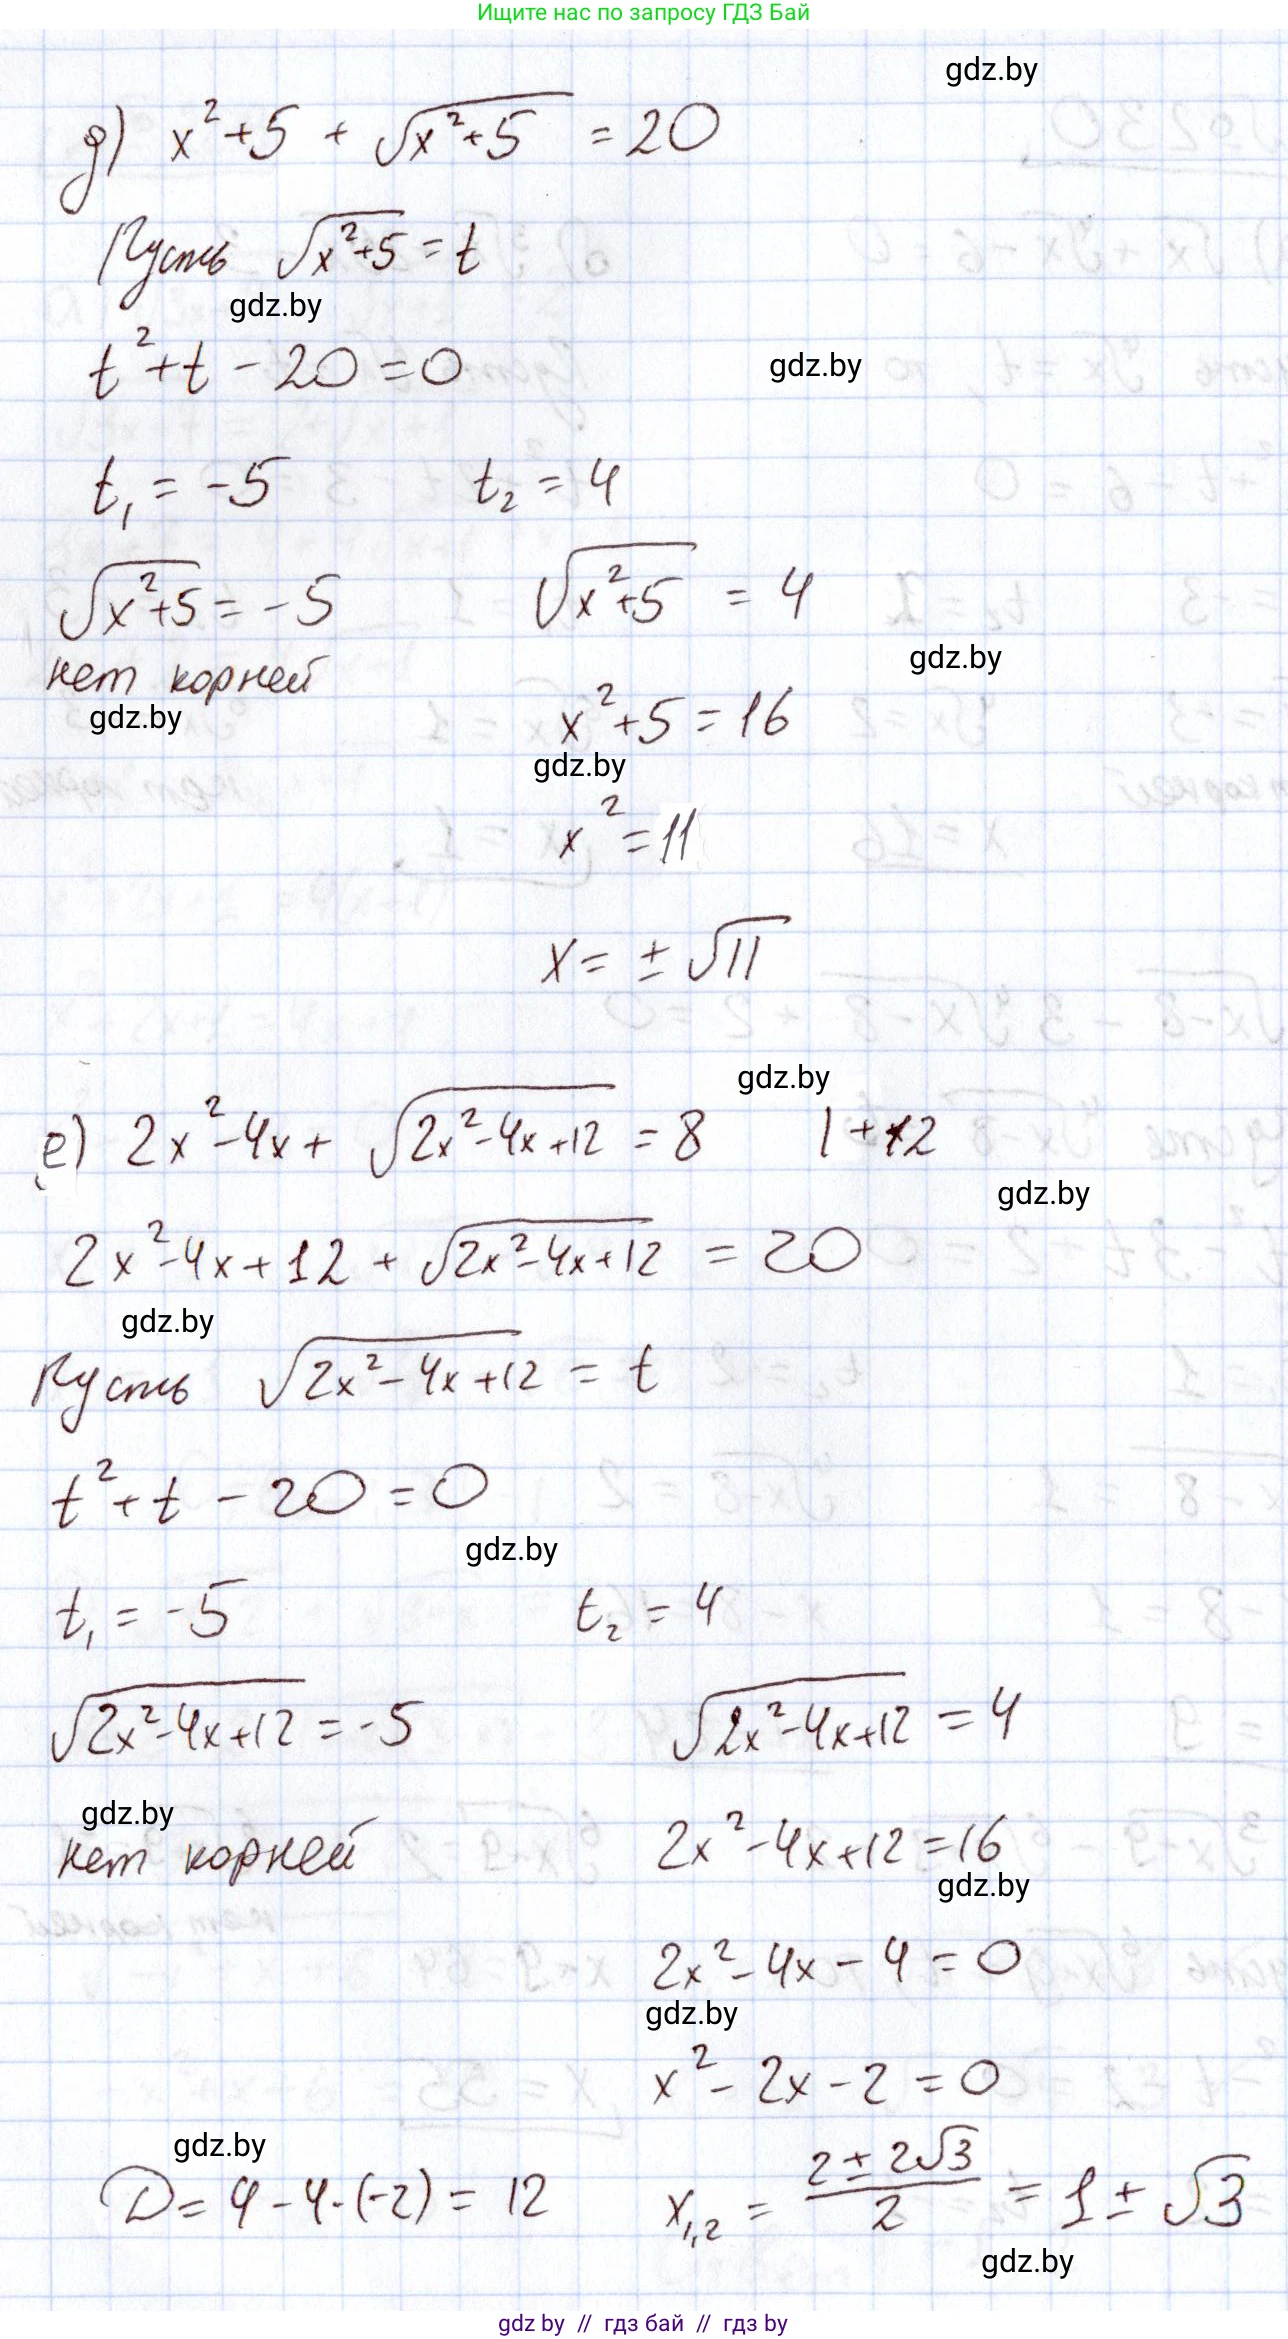 Ищите нас по запросу ГДЗ Бай
gdz.by
д) x²+5 + √(x²+5) = 20
Пусть √(x²+5) = t
gdz.by
t²+t - 20 = 0
gdz.by
t₁ = -5 t₂ = 4
√(x²+5) = -5 √(x²+5) = 4
нет корней
gdz.by
gdz.by
x²+5 = 16
gdz.by
x² = 11
x = ± √11
gdz.by
е) 2x²-4x + √(2x²-4x+12) = 8 | +12
gdz.by
2x²-4x+12 + √(2x²-4x+12) = 20
gdz.by
Пусть √(2x²-4x+12) = t
t²+t - 20 = 0
gdz.by
t₁ = -5 t₂ = 4
√(2x²-4x+12) = -5 √(2x²-4x+12) = 4
gdz.by
нет корней 2x²-4x+12 = 16
gdz.by
2x²-4x - 4 = 0
gdz.by
x²- 2x - 2 = 0
gdz.by
D = 4 - 4·(-2) = 12 x₁,₂ = (2 ± 2√3)/2 = 1 ± √3
gdz.by
gdz by // гдз бай // гдз by